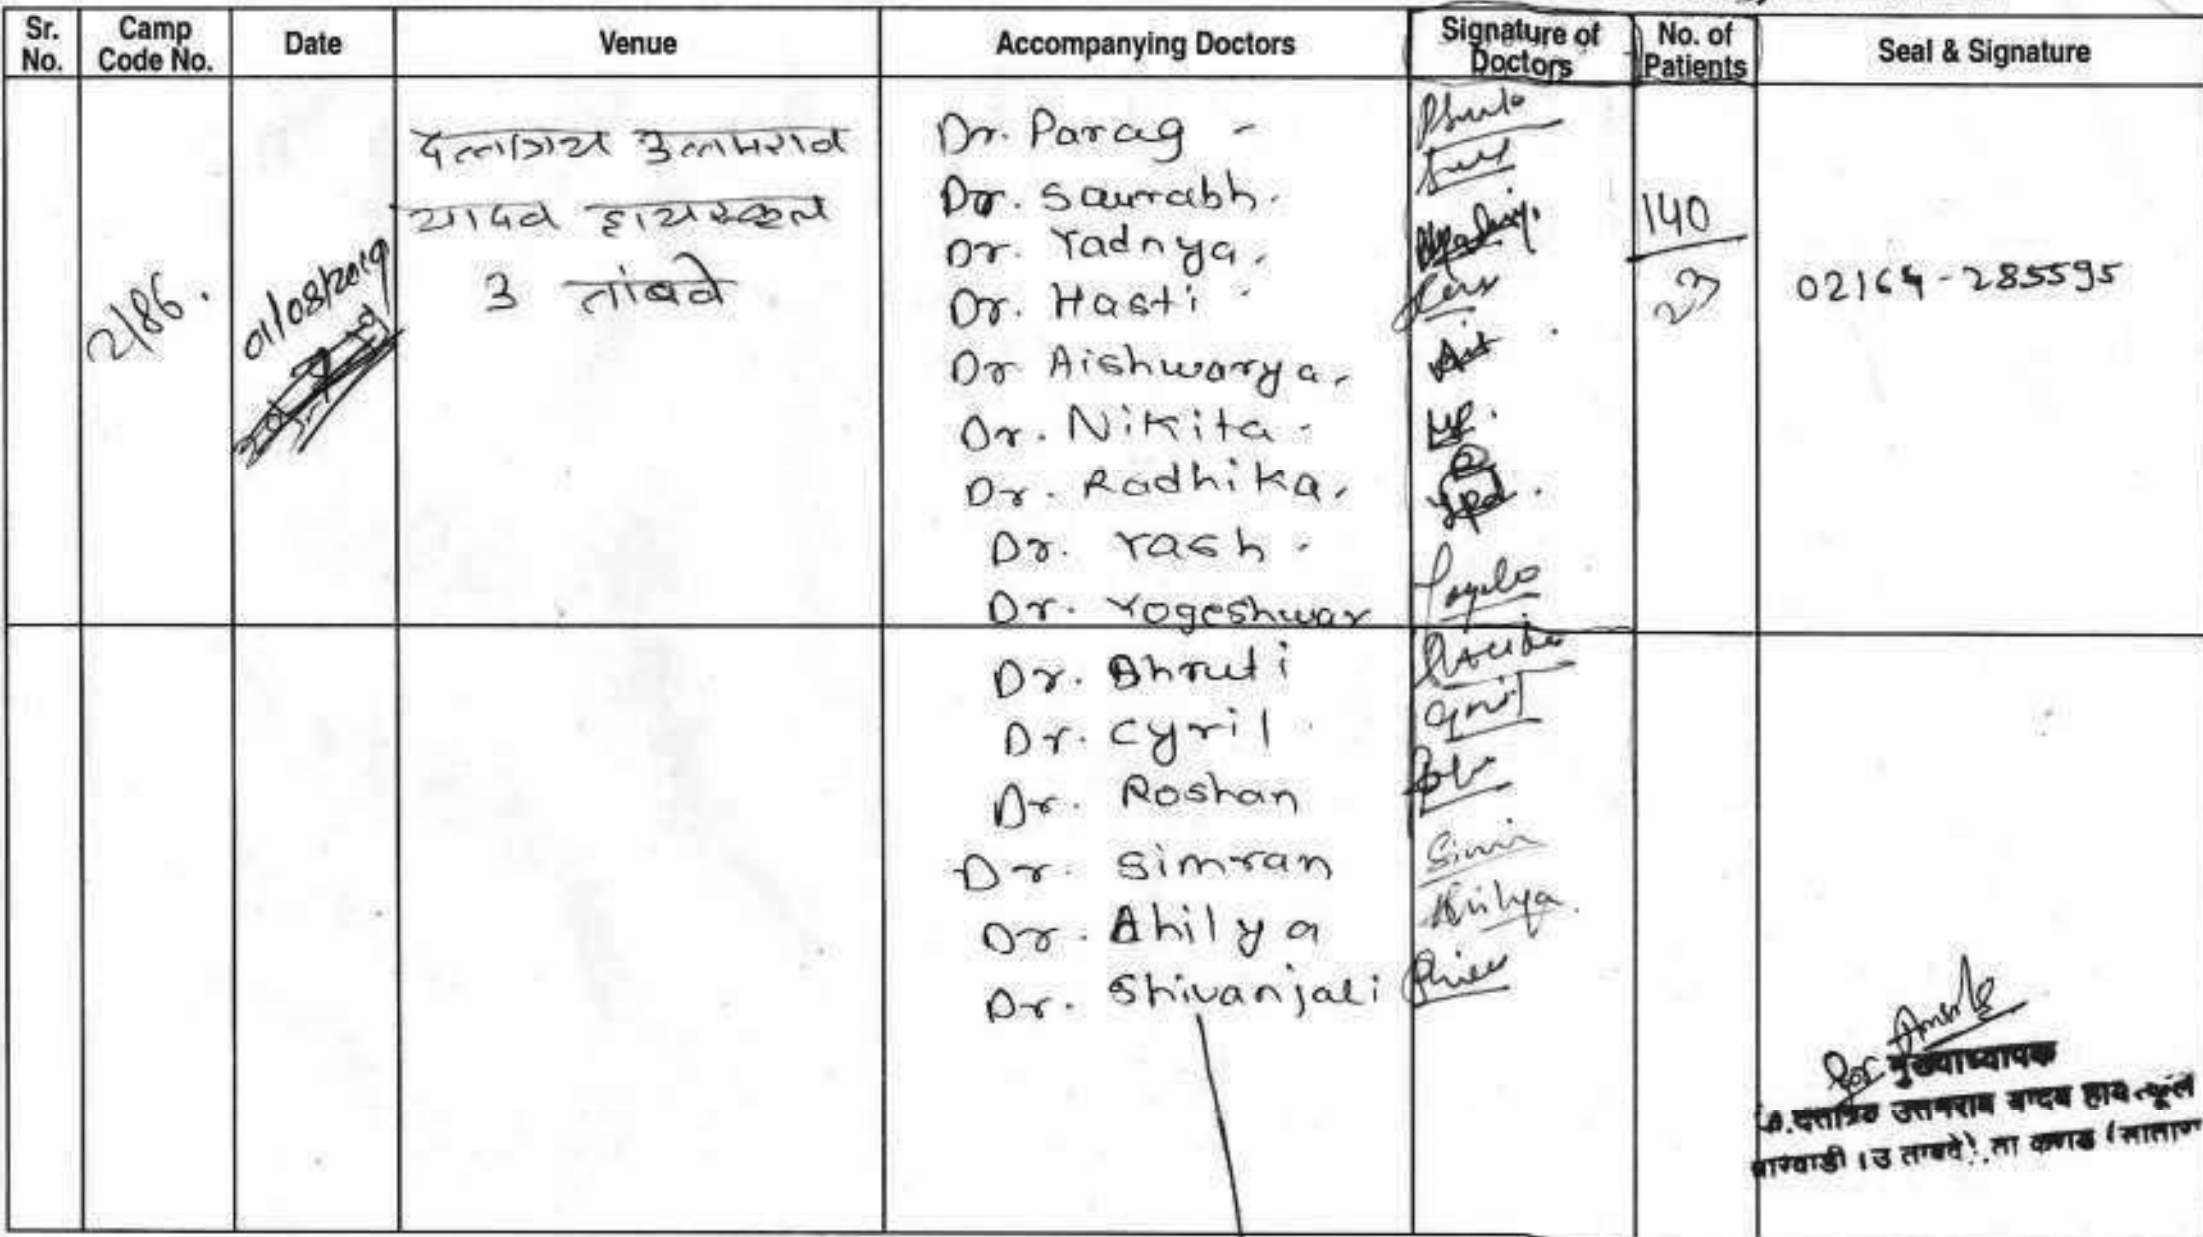 Sr. No.
Camp Code No.
Date
Venue
Accompanying Doctors
Signature of Doctors
No. of Patients
Seal & Signature
2/86.
01/08/2019
दत्तात्रय उत्तमराव
यादव हायस्कूल
उ तांबवे
Dr. Parag
Dr. Saurabh.
Dr. Yadnya.
Dr. Hasti
Dr Aishwarya.
Dr. Nikita
Dr. Radhika.
Dr. Yash
Dr. Yogeshwar
140
23
02164-285595
Dr. Shruti
Dr. Cyril
Dr. Roshan
Dr. Simran
Dr. Ahilya
Dr. Shivanjali
Cyril
For
मुख्याध्यापक
उत्तमराव यादव हायस्कूल
(उ तांबवे) ता कराड (सातारा